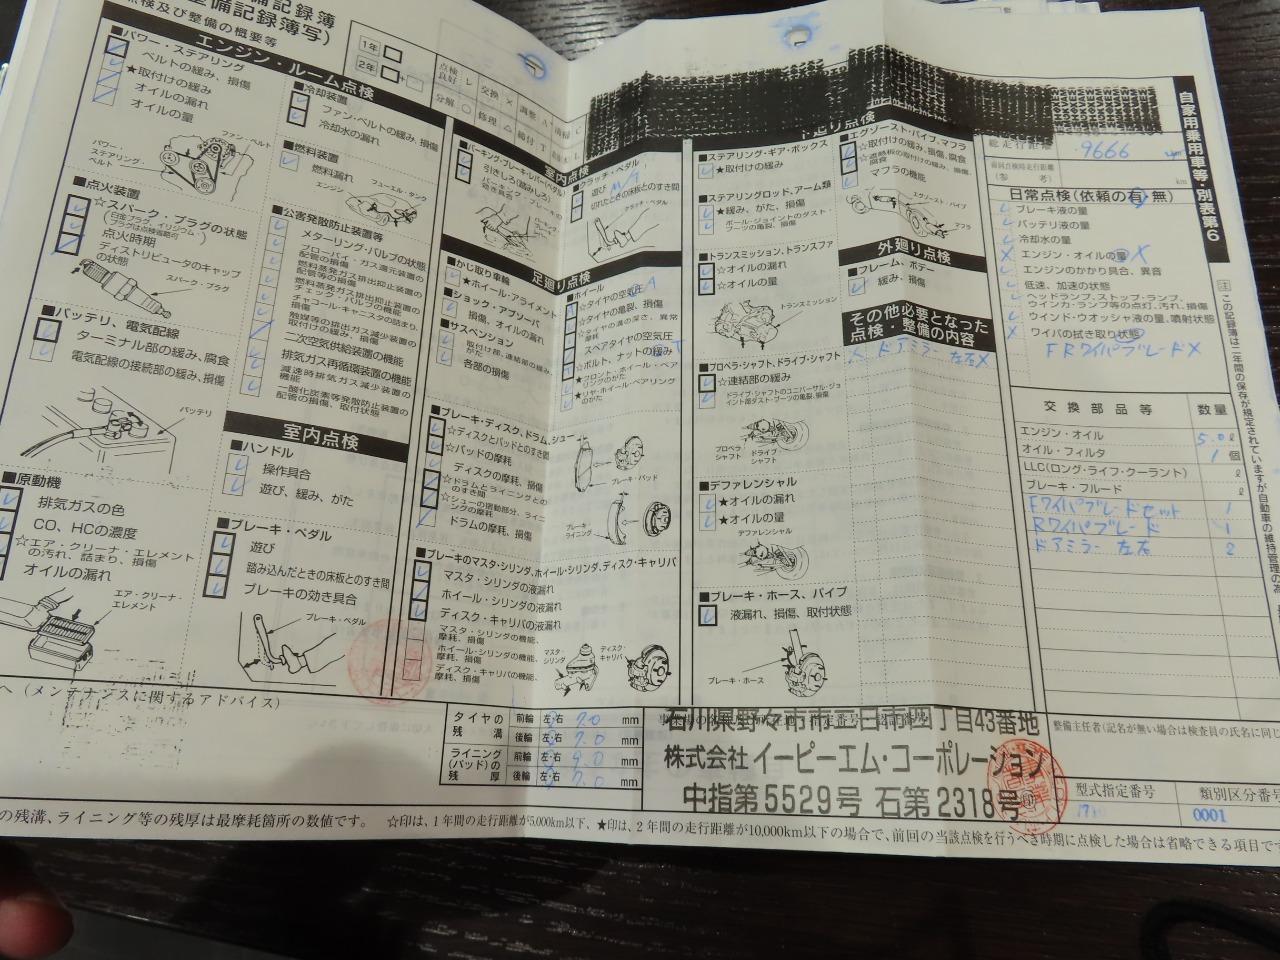 整備記録簿
整備記録簿写)
点検及び整備の概要等
1年
2年
点検良好 レ 交換 ×
分解 ○ 修理 △
自家用乗用車等・別表第6
エンジン・ルーム点検
■パワー・ステアリング
ベルトの緩み、損傷
★取付けの緩み
オイルの漏れ
オイルの量
ファン・ベルト
パワー・ステアリング・ベルト
■点火装置
☆スパーク・プラグの状態
点火時期
ディストリビュータのキャップの状態
スパーク・プラグ
■バッテリ、電気配線
ターミナル部の緩み、腐食
電気配線の接続部の緩み、損傷
バッテリ
■原動機
排気ガスの色
CO、HCの濃度
☆エア・クリーナ・エレメントの汚れ、詰まり、損傷
オイルの漏れ
エア・クリーナ・エレメント
■冷却装置
ファン・ベルトの緩み、損傷
冷却水の漏れ
■燃料装置
燃料漏れ
エンジン
フューエル・タンク
■公害発散防止装置等
メターリング・バルブの状態
ブローバイ・ガス還元装置の配管の損傷
燃料蒸発ガス排出抑止装置の配管等の損傷
燃料蒸発ガス排出抑止装置のチェック・バルブの機能
チャコール・キャニスタの詰まり、損傷
触媒等の排出ガス減少装置の取付けの緩み、損傷
二次空気供給装置の機能
排気ガス再循環装置の機能
減速時排気ガス減少装置の機能
一酸化炭素等発散防止装置の配管の損傷、取付状態
室内点検
■ハンドル
操作具合
遊び、緩み、がた
■ブレーキ・ペダル
遊び
踏み込んだときの床板とのすき間
ブレーキの効き具合
ブレーキ・ペダル
室内点検
■パーキング・ブレーキ・レバー(ペダル)
引きしろ(踏みしろ)
パーキング・ブレーキの効き具合
■クラッチ・ペダル
遊び
M/T
切れたときの床板とのすき間
クラッチ・ペダル
足廻り点検
■かじ取り車輪
★ホイール・アライメント
■ショック・アブソーバ
損傷、オイルの漏れ
■サスペンション
取付部、連結部の緩み、がた
各部の損傷
■ホイール
☆タイヤの空気圧
☆タイヤの亀裂、損傷
☆タイヤの溝の深さ、異常摩耗
スペアタイヤの空気圧
☆ボルト、ナットの緩み
★フロント・ホイール・ベアリングのがた
★リヤ・ホイール・ベアリングのがた
■ブレーキ・ディスク、ドラム、シュー
☆ディスクとパッドとのすき間
☆パッドの摩耗
ディスクの摩耗、損傷
☆ドラムとライニングとのすき間
☆シューの摺動部分、ライニングの摩耗
ドラムの摩耗、損傷
ブレーキ・パッド
ブレーキ・ライニング
■ブレーキのマスタ・シリンダ、ホイール・シリンダ、ディスク・キャリパ
マスタ・シリンダの液漏れ
ホイール・シリンダの液漏れ
ディスク・キャリパの液漏れ
マスタ・シリンダの機能、摩耗、損傷
ホイール・シリンダの機能、摩耗、損傷
ディスク・キャリパの機能、摩耗、損傷
マスタ・シリンダ
ディスク・キャリパ
下廻り点検
■ステアリング・ギア・ボックス
★取付けの緩み
■ステアリングロッド、アーム類
★緩み、がた、損傷
ボール・ジョイントのダスト・ブーツの亀裂、損傷
■トランスミッション、トランスファ
☆オイルの漏れ
☆オイルの量
トランスミッション
■プロペラ・シャフト、ドライブ・シャフト
☆連結部の緩み
ドライブ・シャフトのユニバーサル・ジョイント部ダスト・ブーツの亀裂、損傷
プロペラシャフト
ドライブ・シャフト
■デファレンシャル
★オイルの漏れ
★オイルの量
デファレンシャル
■ブレーキ・ホース、パイプ
液漏れ、損傷、取付状態
ブレーキ・ホース
■エグゾースト・パイプ、マフラ
☆取付けの緩み、損傷、腐食
☆遮熱板の取付けの緩み、損傷、腐食
マフラの機能
エグゾースト・パイプ
マフラ
外廻り点検
■フレーム、ボデー
緩み、損傷
その他必要となった
点検・整備の内容
ドアミラー 左右×
総走行距離 9666 km
前回点検時走行距離
(参考) km
日常点検(依頼の有・無)
ブレーキ液の量
バッテリ液の量
冷却水の量
エンジン・オイルの量 ×
エンジンのかかり具合、異音
低速、加速の状態
ヘッドランプ、ストップ・ランプ、ウインカ・ランプ等の点灯、汚れ、損傷
ウインド・ウオッシャ液の量、噴射状態
ワイパの拭き取り状態
FRワイパブレード×
交換部品等 数量
エンジン・オイル 5.0 ℓ
オイル・フィルタ 1 個
LLC(ロング・ライフ・クーラント) ℓ
ブレーキ・フルード ℓ
Fワイパブレードセット 1
Rワイパブレード 1
ドアミラー 左右 2
注 この記録簿は二年間の保存が規定されていますが自動車の維持管理の為
へ(メンテナンスに関するアドバイス)
タイヤの残溝 前輪 左・右 7.0 mm
後輪 左・右 7.0 mm
ライニング(パッド)の残厚 前輪 左・右 9.0 mm
後輪 左・右 7.0 mm
石川県野々市市二日市四丁目43番地
株式会社イーピーエム・コーポレーション
中指第5529号 石第2318号
整備主任者(記名が無い場合は検査員の氏名に同じ
型式指定番号
類別区分番号
0001
の残溝、ライニング等の残厚は最摩耗箇所の数値です。 ☆印は、1年間の走行距離が5,000km以下、★印は、2年間の走行距離が10,000km以下の場合で、前回の当該点検を行うべき時期に点検した場合は省略できる項目です